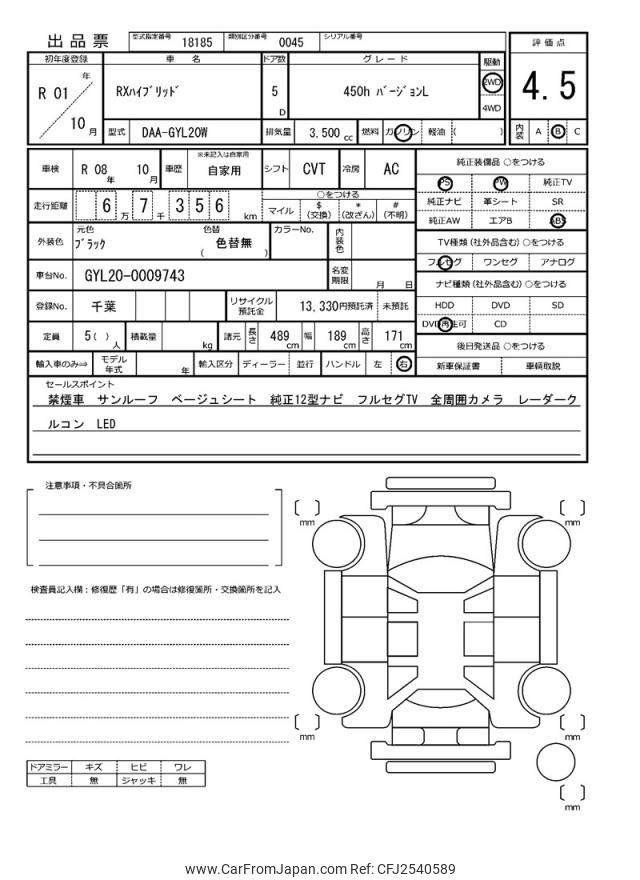 出品票
型式指定番号 18185 類別区分番号 0045 シリアル番号
評価点
4.5
内装 A B C
初年度登録 車名 ドア数 グレード 駆動
R 01 年 10 月
RXハイブリッド 5 D 450h バージョンL
2WD
4WD
型式 DAA-GYL20W 排気量 3,500 cc 燃料 ガソリン 軽油 ( )
車検 R 08 年 10 月 車歴 ※未記入は自家用 自家用 シフト CVT 冷房 AC
走行距離 6 万 7 千 3 5 6 km
○をつける
マイル $ (交換) * (改ざん) # (不明)
外装色 元色 ブラック 色替 ( 色替無 ) カラーNo. 内装色
車台No. GYL20-0009743 名変期限 月 日
登録No. 千葉 リサイクル預託金 13,330円預託済 未預託
定員 5( ) 人 積載量 kg 諸元 長さ 489 cm 幅 189 cm 高さ 171 cm
輸入車のみ⇒ モデル年式 年 輸入区分 ディーラー 並行 ハンドル 左 右
純正装備品 ○をつける
PS PW 純正TV
純正ナビ 革シート SR
純正AW エアB ABS
TV種類 (社外品含む) ○をつける
フルセグ ワンセグ アナログ
ナビ種類 (社外品含む) ○をつける
HDD DVD SD
DVD再生可 CD
後日発送品 ○をつける
新車保証書 車輌取説
セールスポイント
禁煙車 サンルーフ ベージュシート 純正12型ナビ フルセグTV 全周囲カメラ レーダーク
ルコン LED
注意事項・不具合箇所
検査員記入欄:修復歴「有」の場合は修復箇所・交換箇所を記入
ドアミラー キズ ヒビ ワレ
工具 無 ジャッキ 無
[ ] mm
[ ] mm
[ ] mm
[ ] mm
[ ] mm
www.CarFromJapan.com Ref: CFJ2540589